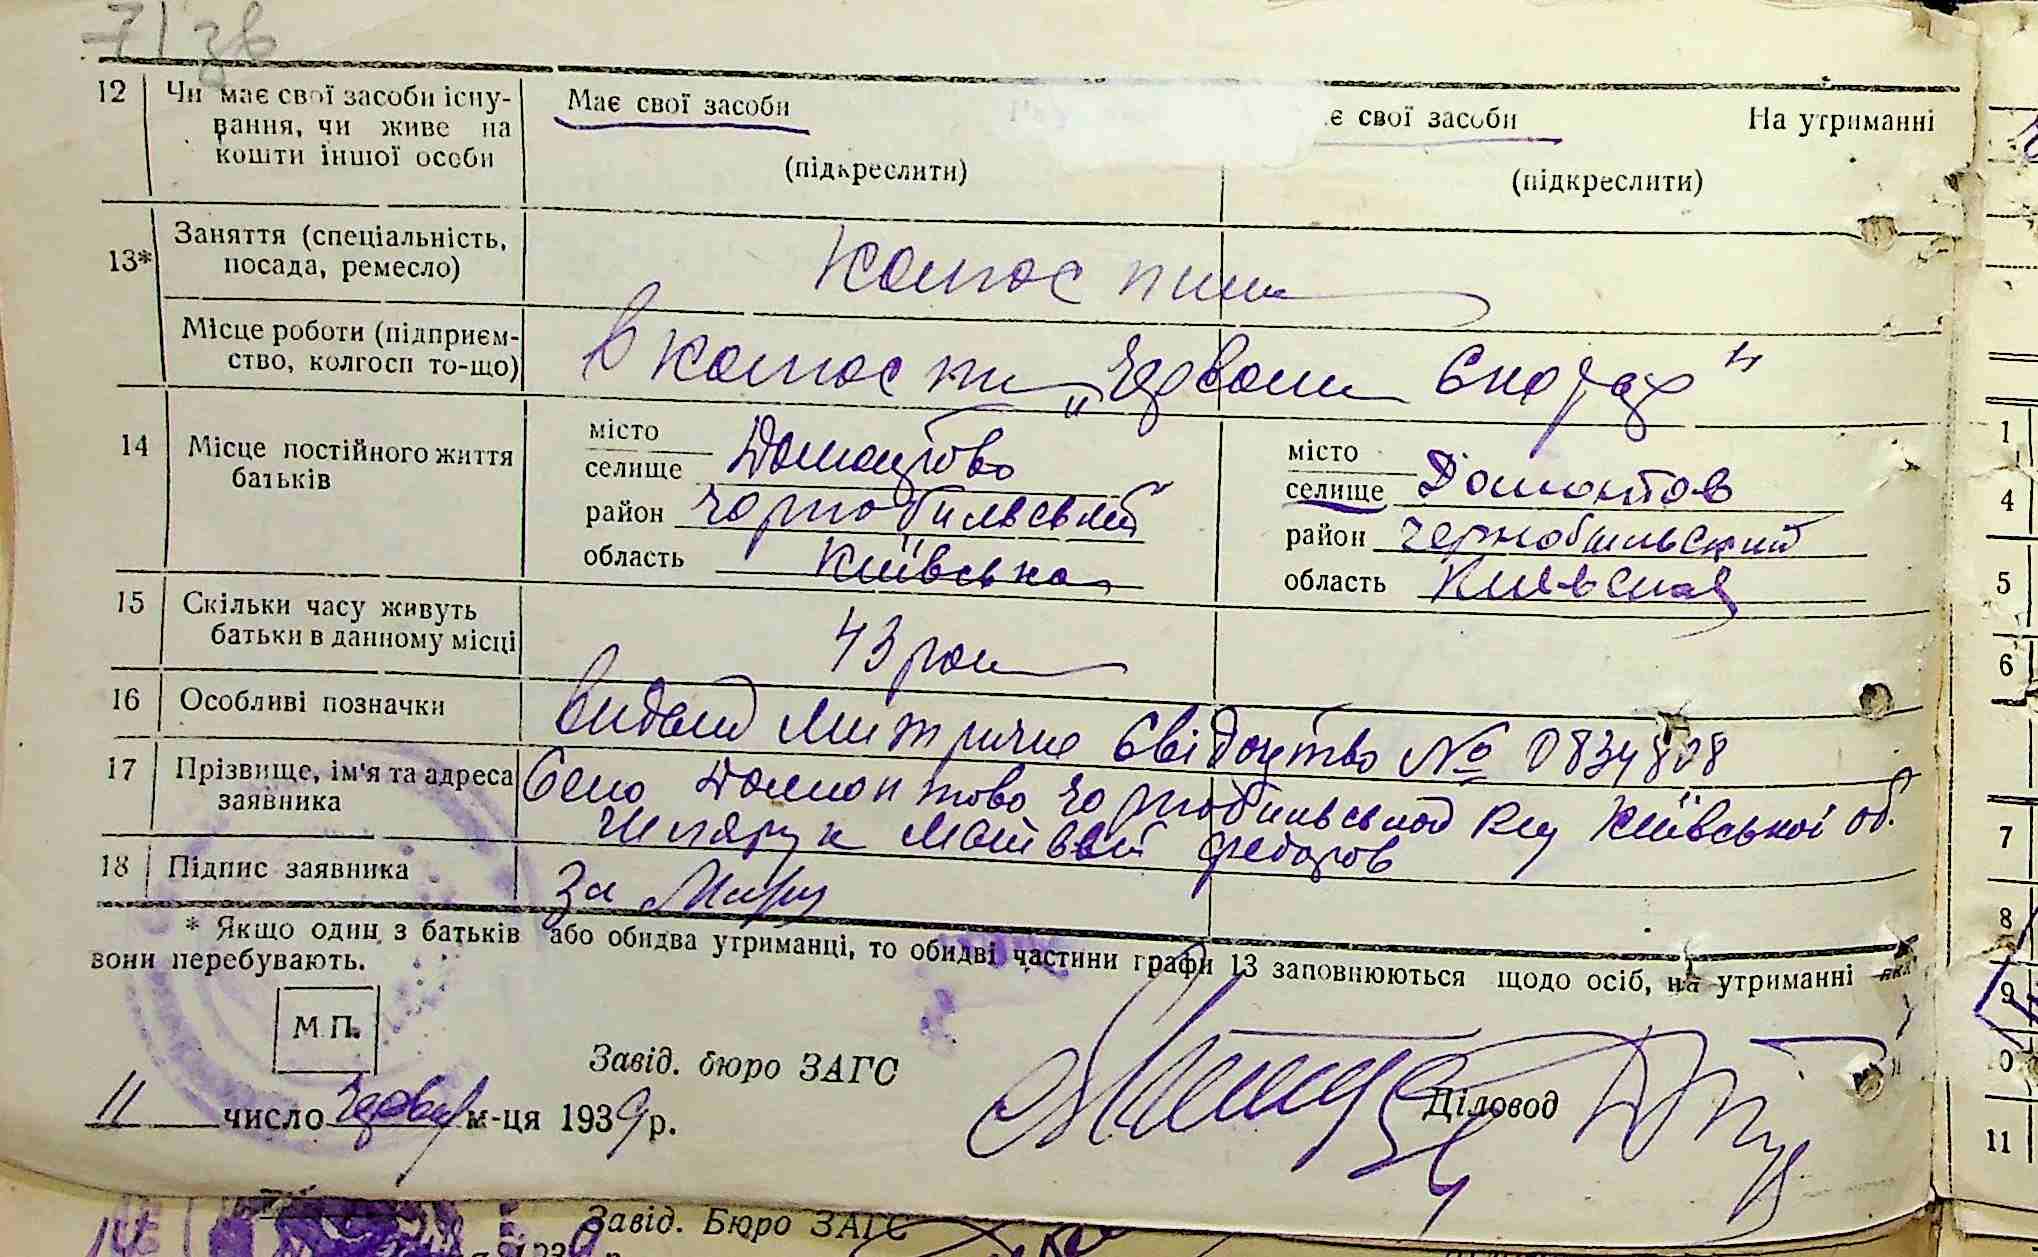 71 зв
12 Чи має свої засоби існу-
вання, чи живе на
кошти іншої особи
Має свої засоби
(підкреслити)
є свої засоби На утриманні
(підкреслити)
13* Заняття (спеціальність,
посада, ремесло)
Місце роботи (підприєм-
ство, колгосп то-що)
в
14 Місце постійного життя
батьків
місто
селище Домантово
район Чорнобильський
область Київська
місто
селище Домонтов
район Чернобильский
область Киевская
15 Скільки часу живуть
батьки в данному місці
43 роки
16 Особливі позначки
Видано Митричне Свідоцтво № 0834808
17 Прізвище, ім'я та адреса
заявника
Село Домонтово Чорнобильського Київської об.
18 Підпис заявника
За
* Якщо один з батьків або обидва утриманці, то обидві частини графи 13 заповнюються щодо осіб, на утриманні яких
вони перебувають.
М. П.
Завід. бюро ЗАГС
Діловод
11 число Червня м-ця 1939 р.
Завід. Бюро ЗАГС
1
4
5
6
7
8
9
10
11